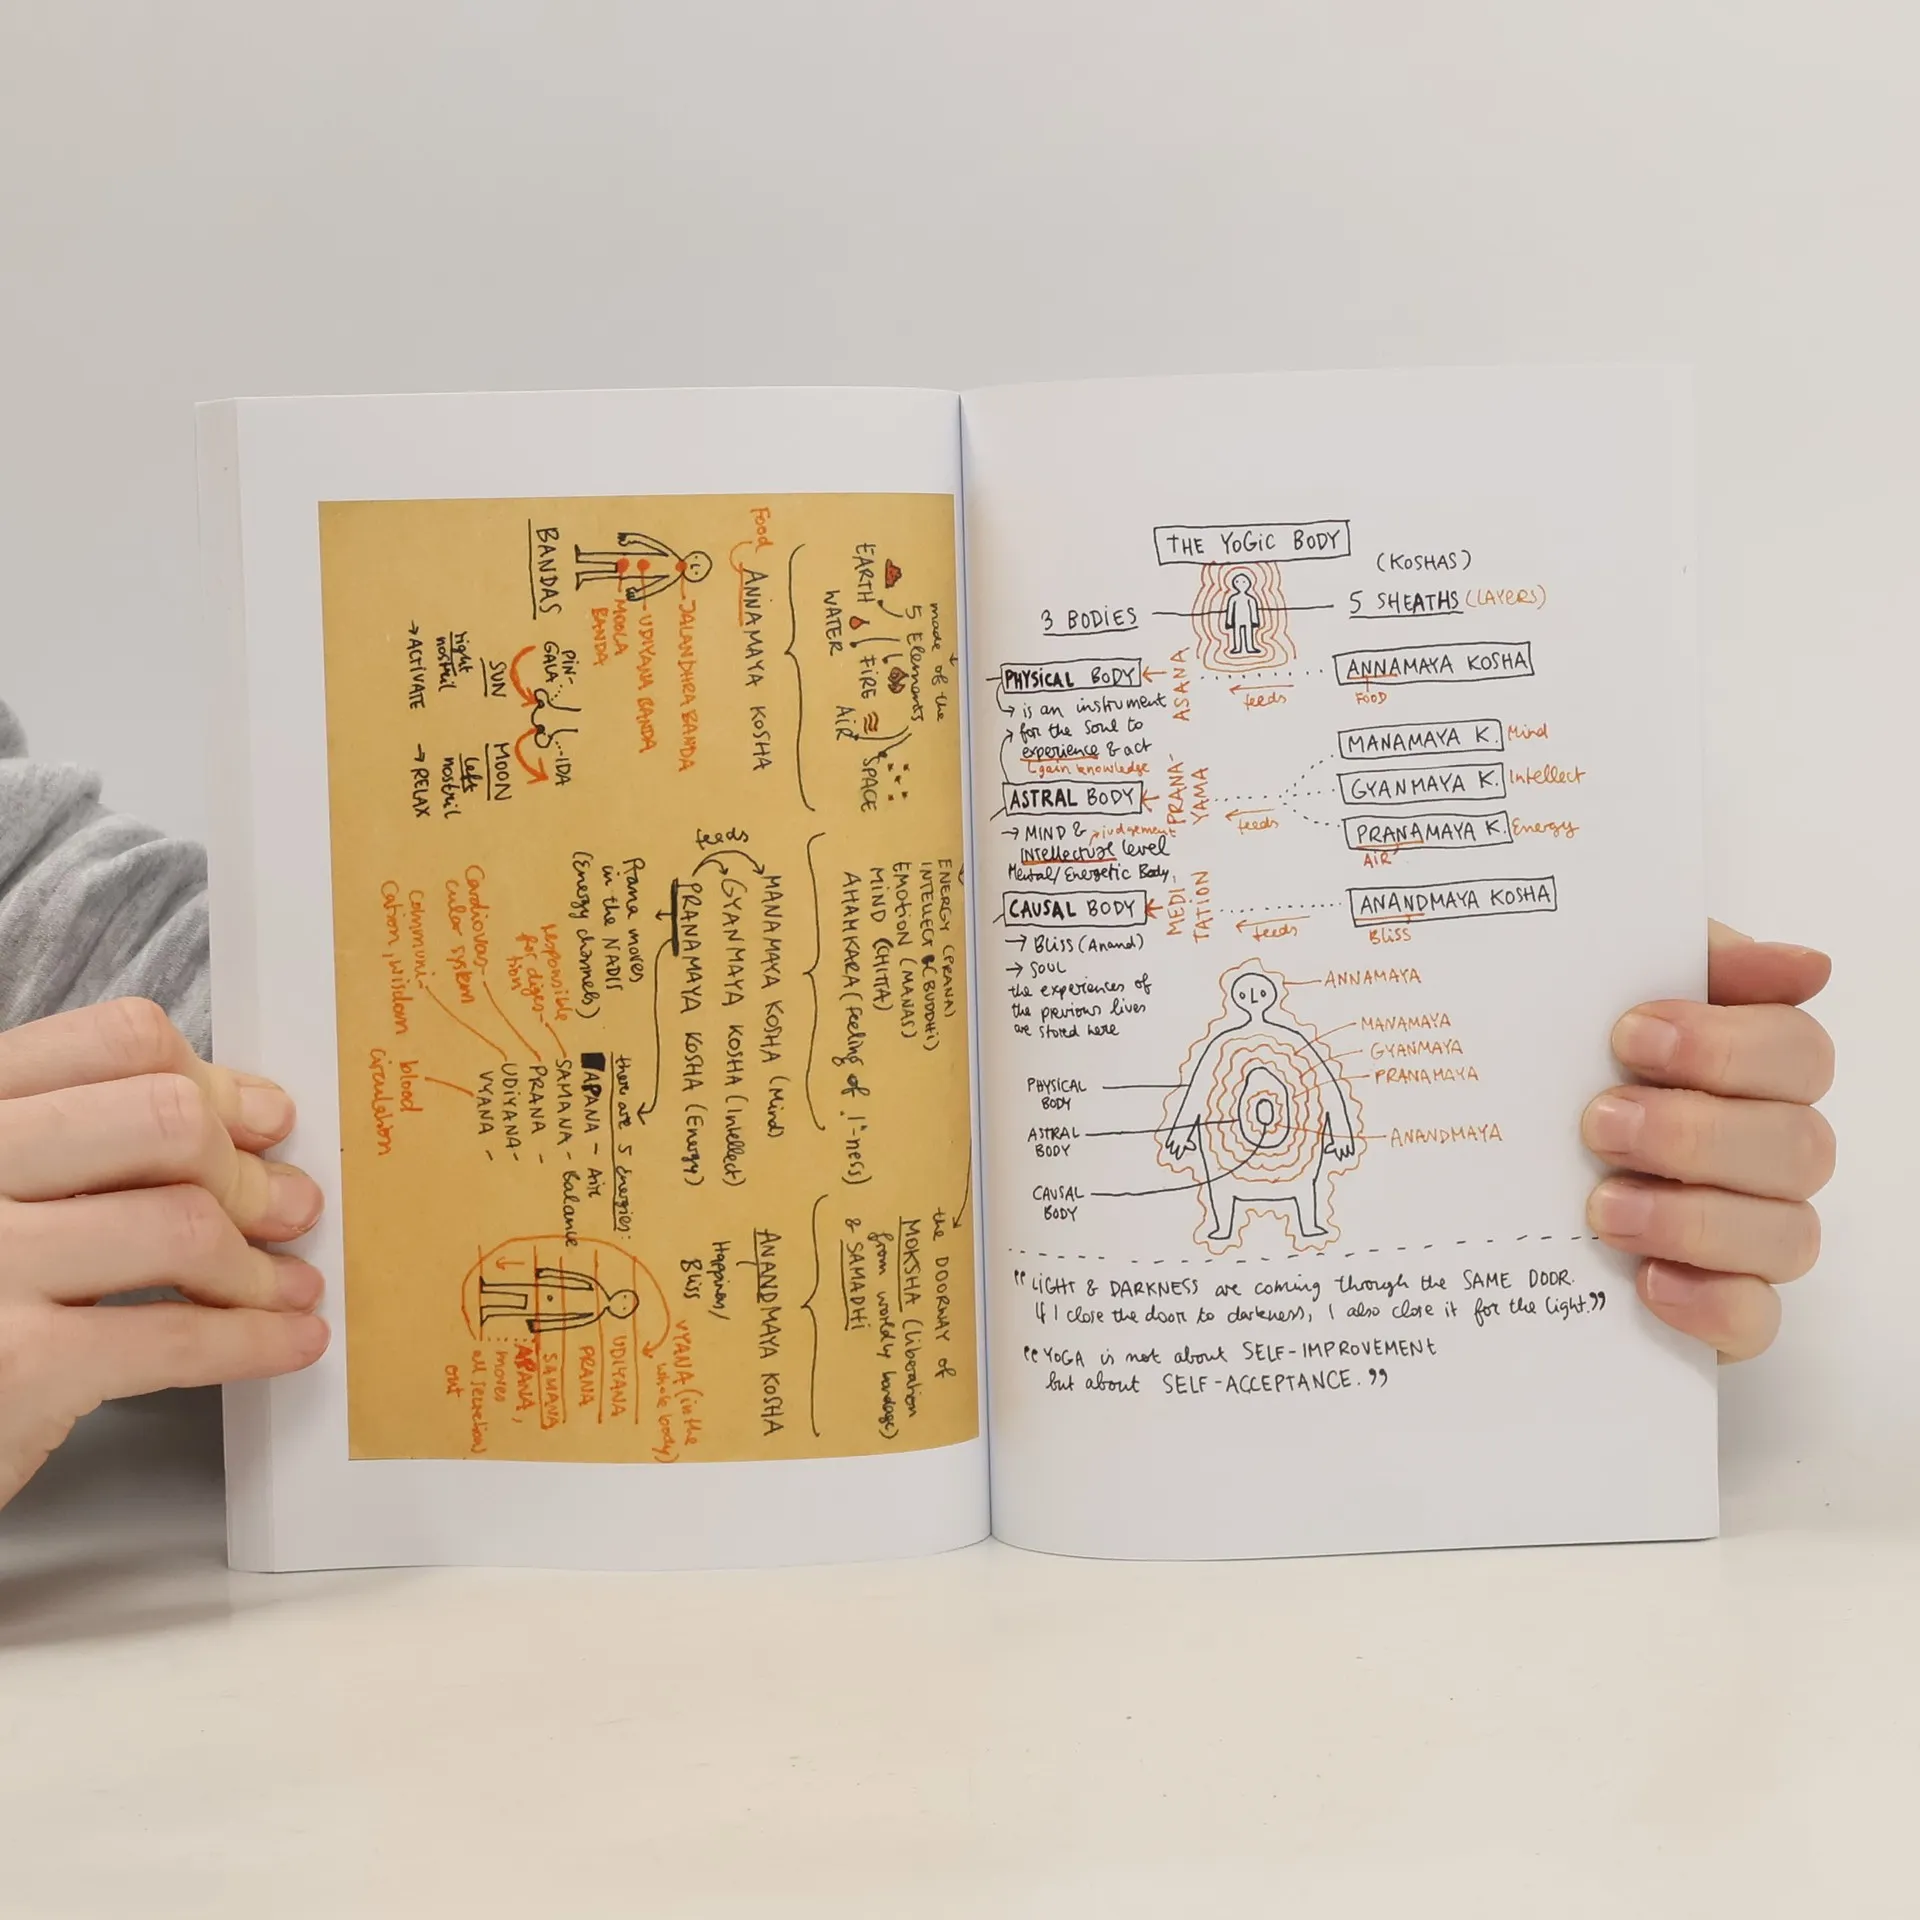 made of the
5 Elements
EARTH
FIRE
SPACE
WATER
AiR
Food
ANNAMAYA KOSHA
JALANDHRA BANDA
UDIYANA BANDA
MOOLA
BANDA
BANDAS
PIN-
GALA
IDA
SUN
MOON
right
nostril
left
nostril
→ ACTIVATE
→ RELAX
ENERGY (PRANA)
INTELLECT (BUDDHi)
EMOTION (MANAS)
MIND (CHITTA)
AHAMKARA (Feeling of "I"-ness)
MANAMAYA KOSHA (Mind)
GYANMAYA KOSHA (Intellect)
PRANAMAYA KOSHA (Energy)
feeds
Prana moves
in the NADIS
(Energy channels)
there are 5 Energies:
APANA - Air
SAMANA - Balance
PRANA -
UDIYANA -
VYANA -
responsible
for diges-
tion
Cardiovas-
cular system
communi-
cation, wisdom
blood
circulation
the DOORWAY of
MOKSHA (liberation
from worldly bondage)
& SAMADHi
ANANDMAYA KOSHA
Happiness/
Bliss
VYANA (in the
whole body)
UDIYANA
PRANA
SAMANA
APANA,
moves
all secretion
out
THE YoGiC BODY
(KOSHAS)
3 BODIES
5 SHEATHS (LAYERS)
PHYSICAL BODY
ASANA
feeds
ANNAMAYA KOSHA
FOOD
→ is an instrument
→ for the Soul to
experience & act
gain knowledge
MANAMAYA K. Mind
GYANMAYA K. Intellect
PRANAMAYA K. Energy
AiR
ASTRAL BODY
PRANA-
YAMA
feeds
→ MIND & judgement
Intellectual level
Mental/Energetic Body,
CAUSAL BODY
MEDI
TATION
feeds
ANANDMAYA KOSHA
BLiSS
→ BLiss (Anand)
→ SOUL
the experiences of
the previous lives
are stored here
ANNAMAYA
MANAMAYA
GYANMAYA
PRANAMAYA
ANANDMAYA
PHYSICAL
BODY
ASTRAL
BODY
CAUSAL
BODY
"LiGHT & DARKNESS are coming through the SAME DOOR.
If I close the door to darkness, I also close it for the light."
"YOGA is not about SELF-IMPROVEMENT
but about SELF-ACCEPTANCE."